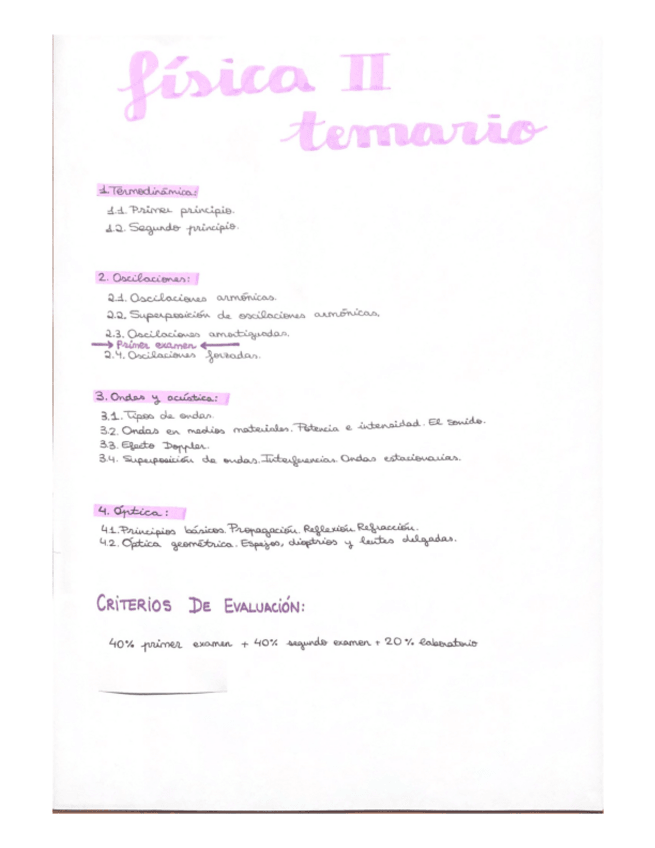 física II
temario
1. Termodinámica:
1.1. Primer principio.
1.2. Segundo principio.
2. Oscilaciones:
2.1. Oscilaciones armónicas.
2.2. Superposición de oscilaciones armónicas.
2.3. Oscilaciones amortiguadas.
→ Primer examen ←
2.4. Oscilaciones forzadas.
3. Ondas y acústica:
3.1. Tipos de ondas.
3.2. Ondas en medios materiales. Potencia e intensidad. El sonido.
3.3. Efecto Doppler.
3.4. Superposición de ondas. Interferencias. Ondas estacionarias.
4. Óptica:
4.1. Principios básicos. Propagación. Reflexión. Refracción.
4.2. Óptica geométrica. Espejos, dioptrios y lentes delgadas.
CRITERIOS DE EVALUACIÓN:
40% primer examen + 40% segundo examen + 20% laboratorio